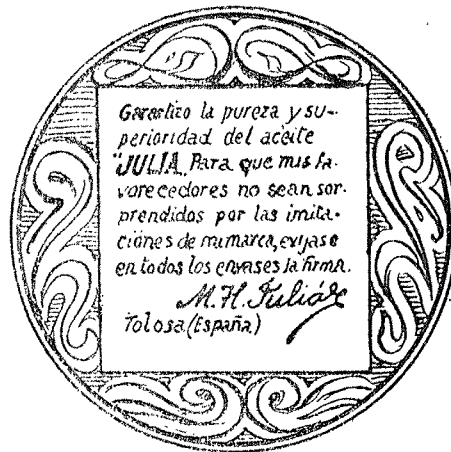 Garantizo la pureza y su-
perioridad del aceite
"JULIA„ Para que mis fa-
vorecedores no sean sor-
prendidos por las imita-
ciones de mi marca, exijase
en todos los envases la firma.
M. H. Juliáz
Tolosa (España)